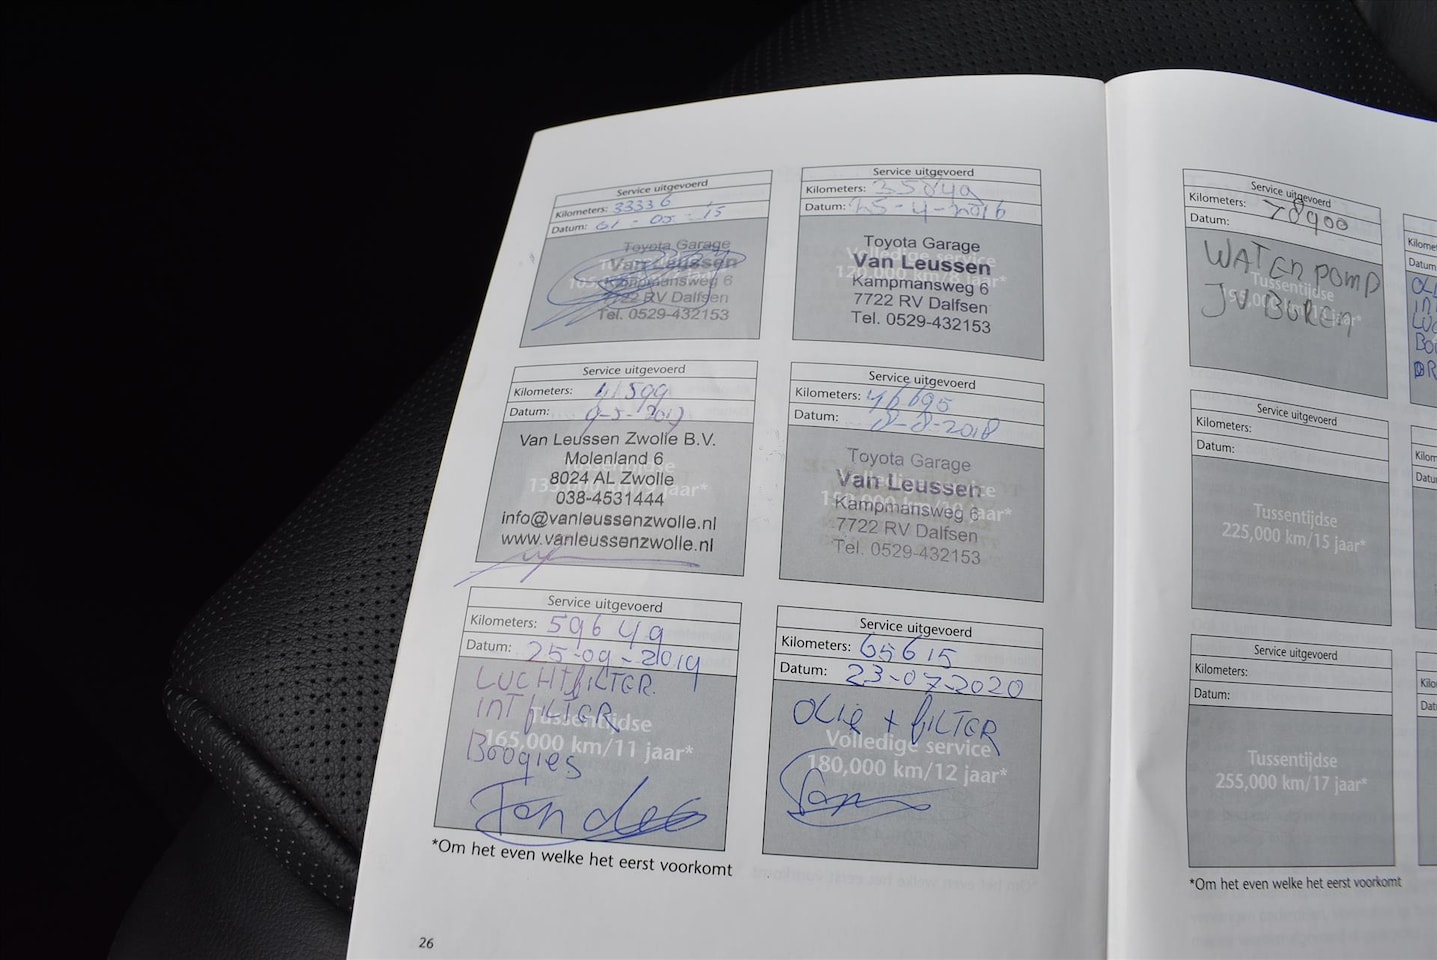 Service uitgevoerd
Kilometers: 33336
Datum: 01-05-'15
Toyota Garage
Van Leussen
Kampmansweg 6
7722 RV Dalfsen
Tel. 0529-432153
Service uitgevoerd
Kilometers: 35849
Datum: 25-4-2016
Toyota Garage
Van Leussen
Kampmansweg 6
7722 RV Dalfsen
Tel. 0529-432153
Volledige service
120,000 km/8 jaar*
Service uitgevoerd
Kilometers: 41599
Datum: 9-5-2017
Van Leussen Zwolle B.V.
Molenland 6
8024 AL Zwolle
038-4531444
info@vanleussenzwolle.nl
www.vanleussenzwolle.nl
Tussentijdse
135,000 km/9 jaar*
Service uitgevoerd
Kilometers: 46695
Datum: 8-8-2018
Toyota Garage
Van Leussen
Kampmansweg 6
7722 RV Dalfsen
Tel. 0529-432153
Volledige service
Service uitgevoerd
Kilometers: 59649
Datum: 25-09-2019
LUCHTFILTER.
INTFILTER
Boogies
Tussentijdse
165,000 km/11 jaar*
Service uitgevoerd
Kilometers: 65615
Datum: 23-07-2020
OLIE + FILTER
Volledige service
180,000 km/12 jaar*
*Om het even welke het eerst voorkomt
26
Service uitgevoerd
Kilometers: 78900
Datum:
WATERPOMP
JV BUREN
Tussentijdse
Service uitgevoerd
Kilometers:
Datum:
Tussentijdse
225,000 km/15 jaar*
Service uitgevoerd
Kilometers:
Datum:
Tussentijdse
255,000 km/17 jaar*
*Om het even welke het eerst voorkomt